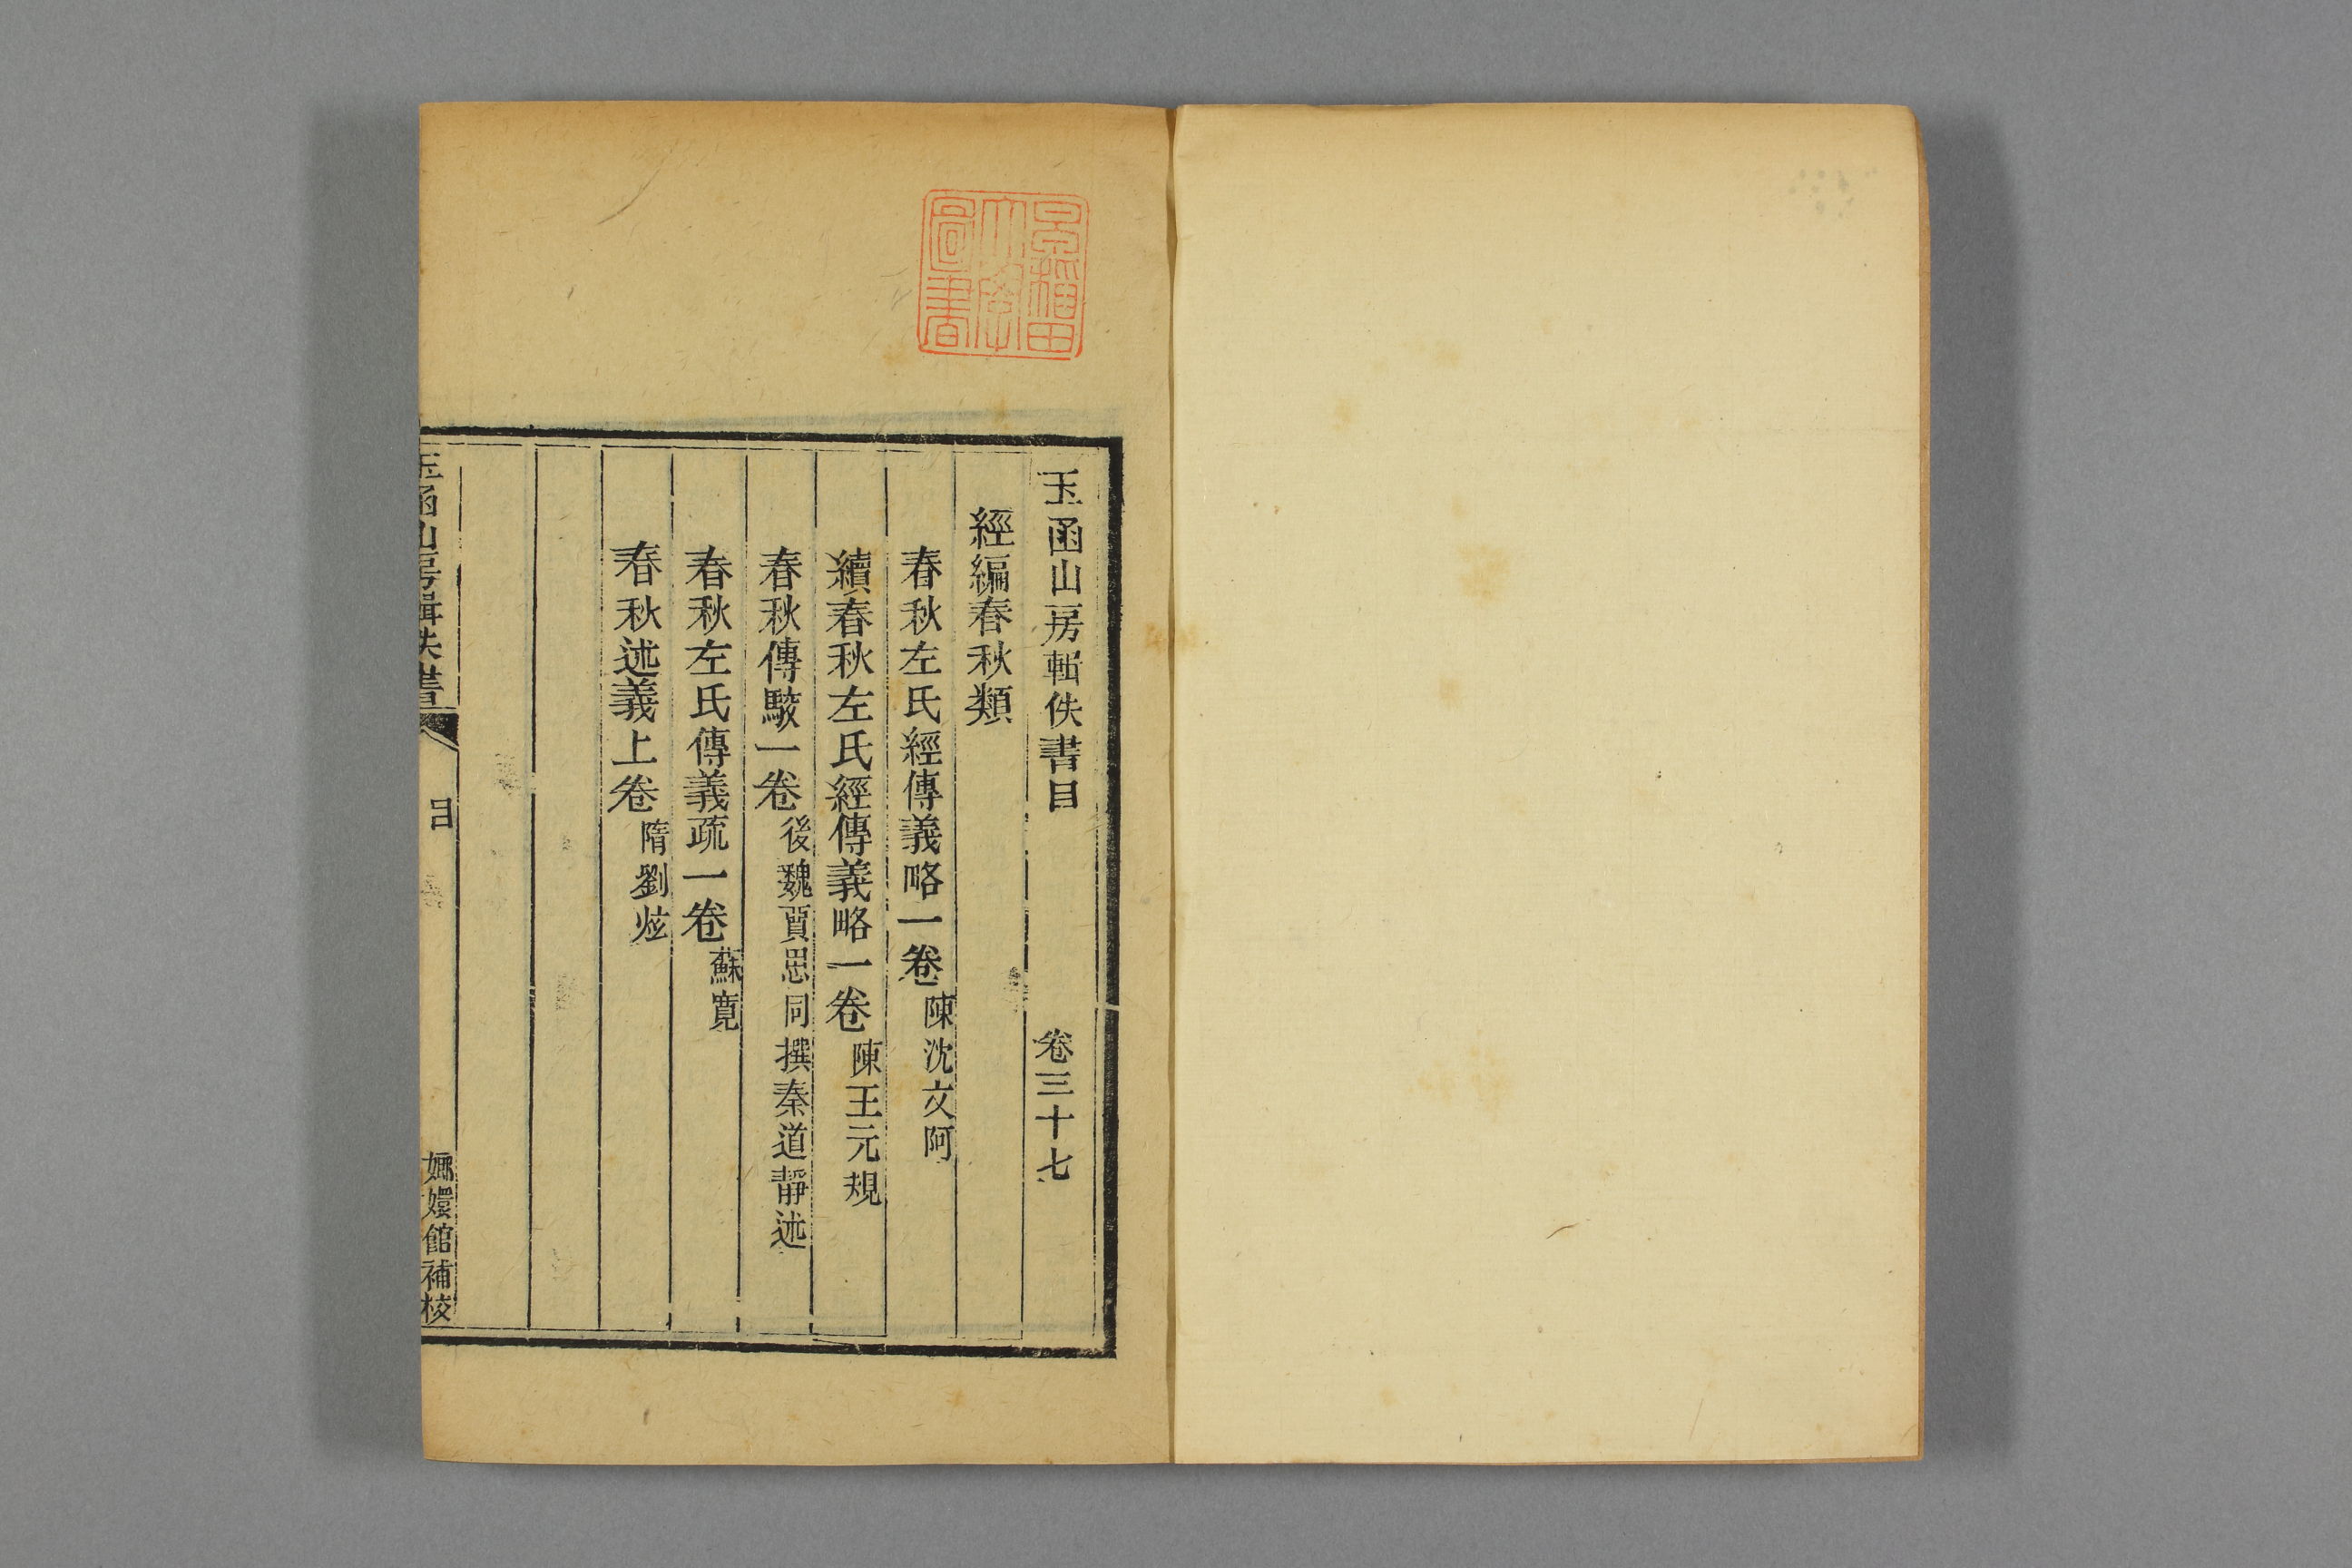 玉函山房輯佚書目　卷三十七
經編春秋類
春秋左氏經傳義略一卷 陳沈文阿
續春秋左氏經傳義略一卷 陳王元規
春秋傳駮一卷 後魏賈思同撰秦道靜述
春秋左氏傳義疏一卷 蘇寬
春秋述義上卷 隋劉炫
玉函山房輯佚書　目　嫏嬛館補校
早稻田大學圖書